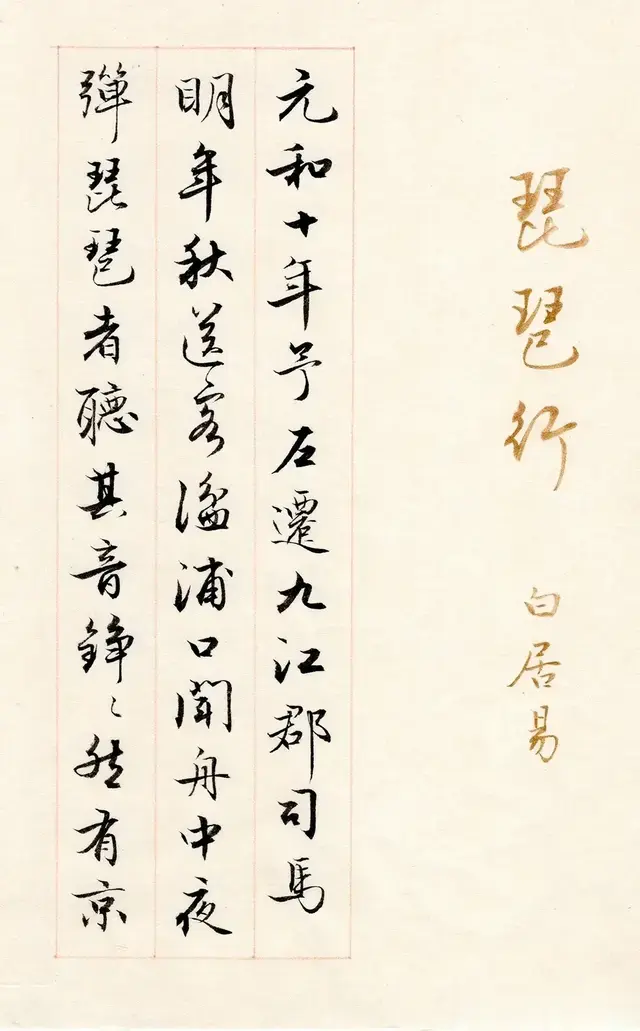 琵琶行
白居易
元和十年予左遷九江郡司馬
明年秋送客湓浦口聞舟中夜
彈琵琶者聽其音錚〻然有京